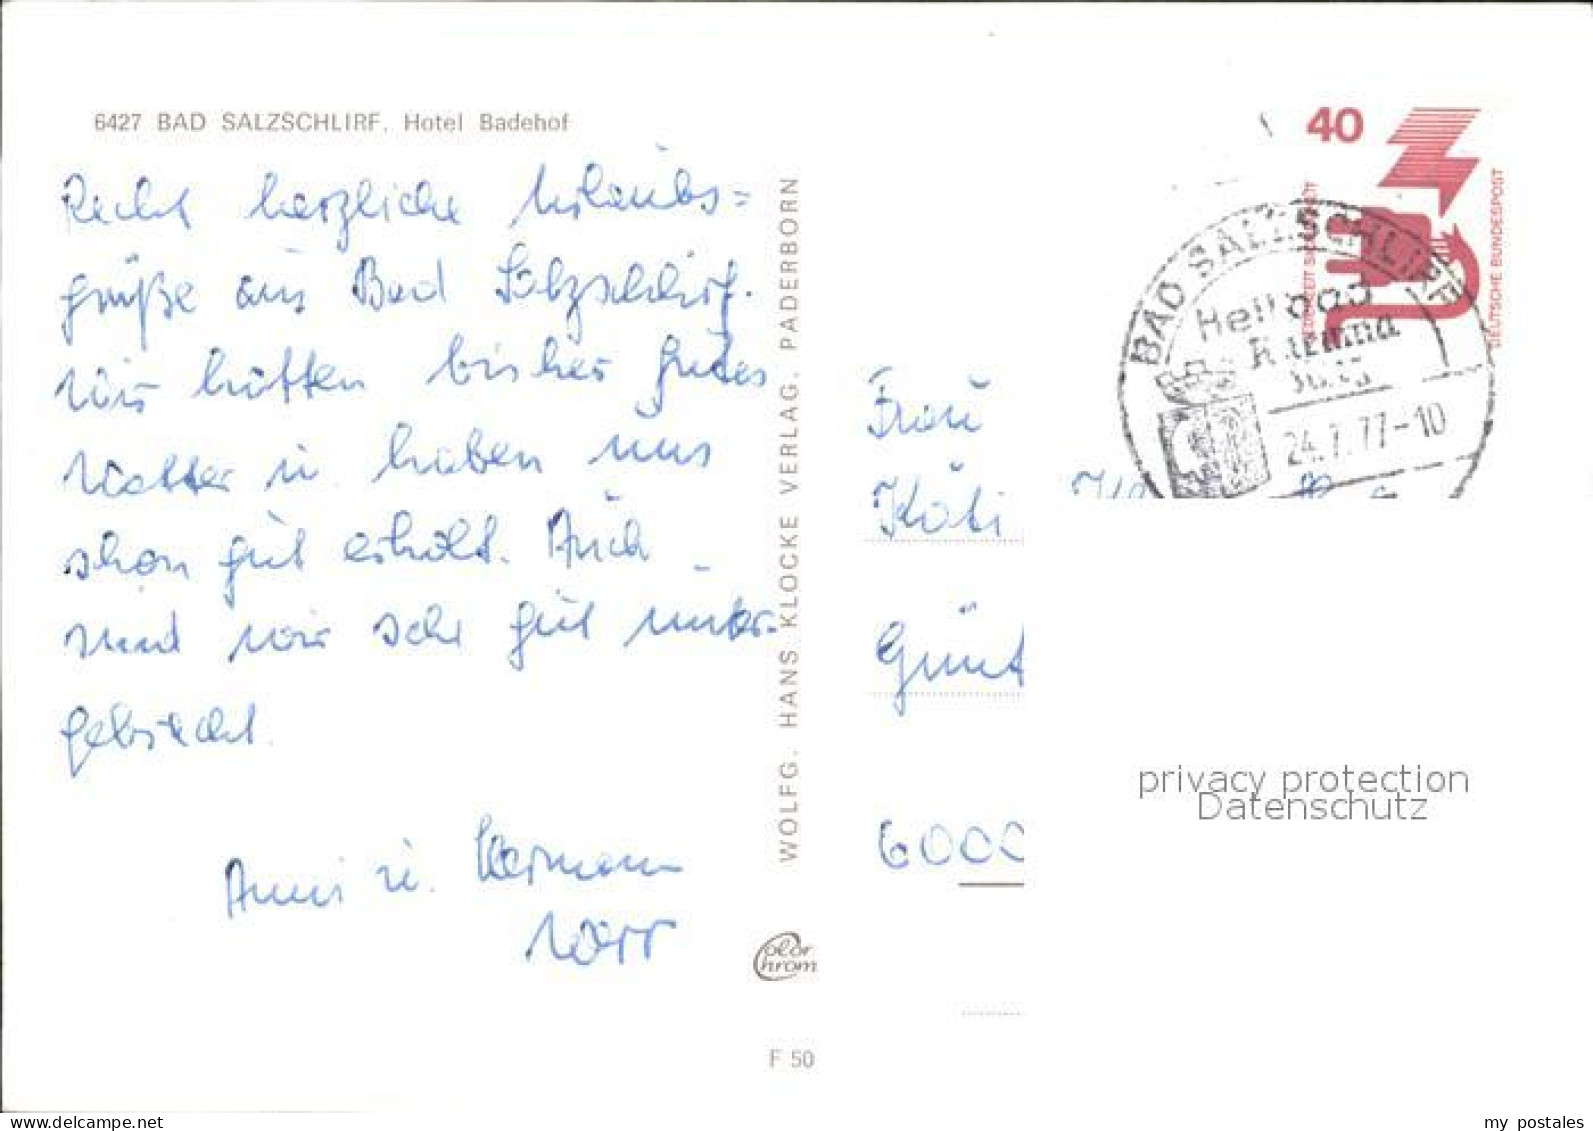 6427 BAD SALZSCHLIRF. Hotel Badehof
Recht herzliche Urlaubs=
grüße aus Bad Salzschlirf.
Wir hatten bisher gutes
Wetter u. haben uns
schon gut erholt. Auch
sind wir sehr gut unter-
gebracht.
Anni u. Hermann
WOLFG. HANS KLOCKE VERLAG. PADERBORN
Color
Chrom
F 50
40
JEDERZEIT SICHERHEIT
DEUTSCHE BUNDESPOST
BAD SALZSCHLIRF
Heilbad
Rheuma
24.7.77-10
Frau
Käti
Günt
6000
privacy protection
Datenschutz
www.delcampe.net
my_postales